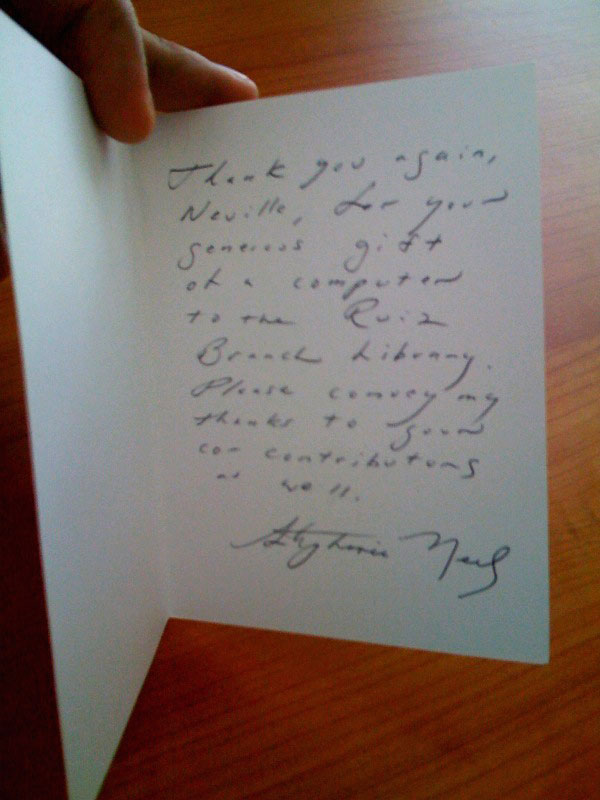 Thank you again,
Neville, for your
generous gift
of a computer
to the Ruiz
Branch Library.
Please convey my
thanks to your
co contributors
as well.
Stephanie